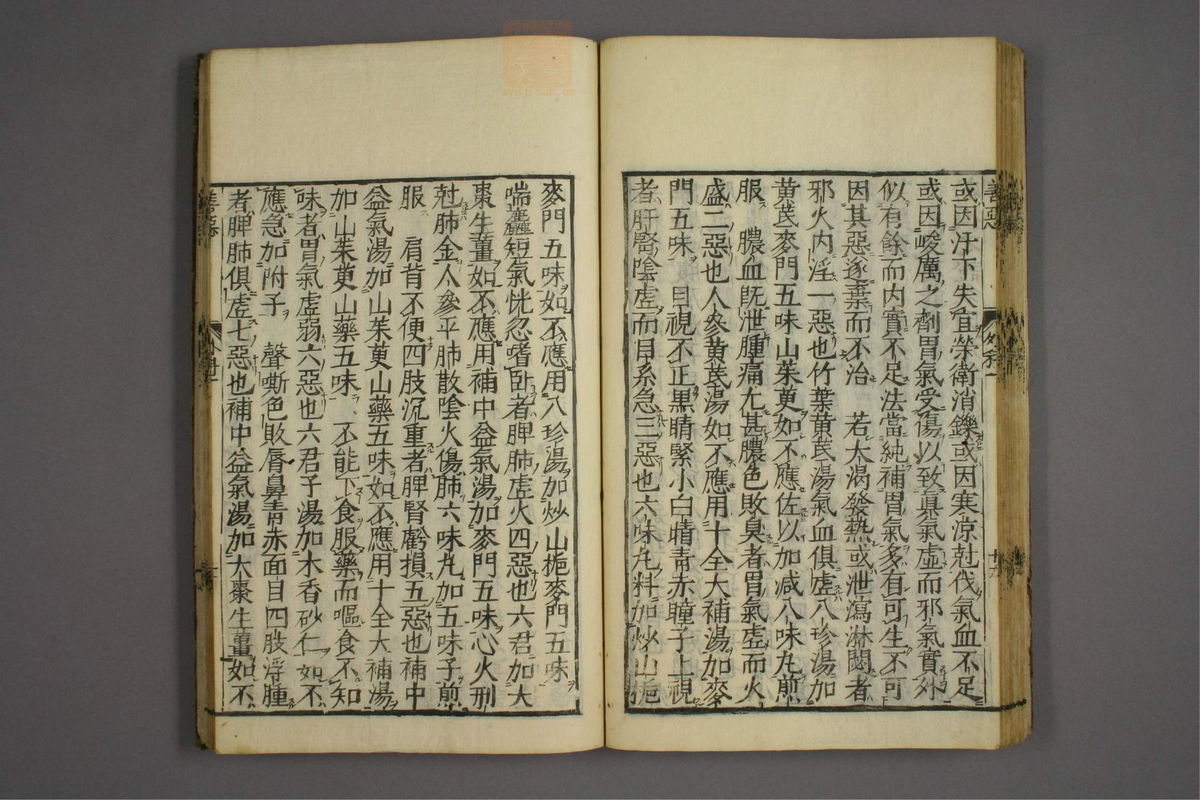 善惡
或因汗下失宜榮衛消鑠或因寒涼尅伐氣血不足
或因峻厲之劑胃氣受傷以致眞氣虛而邪氣實外
似有餘而内實不足法當純補胃氣多有可生不可
因其惡遂棄而不治 若大渴發熱或泄瀉淋閟者
邪火内淫一惡也竹葉黃芪湯氣血俱虛八珍湯加
黃芪麥門五味山茱萸如不應佐以加減八味丸煎
服 膿血旣泄腫痛尢甚膿色敗臭者胃氣虛而火
盛二惡也人參黃芪湯如不應用十全大補湯加麥
門五味 目視不正黒睛緊小白睛靑赤瞳子上視
者肝腎陰虛而目系急三惡也六味丸料加炒山梔
麥門五味如不應用八珍湯加炒山梔麥門五味
喘麤短氣恍忽嗜卧者脾肺虛火四惡也六君加大
棗生薑如不應用補中益氣湯加麥門五味心火刑
尅肺金人參平肺散陰火傷肺六味丸加五味子煎
服 肩背不便四肢沉重者脾腎虧損五惡也補中
益氣湯加山茱萸山藥五味如不應用十全大補湯
加山茱萸山藥五味 不能下食服藥而嘔食不知
味者胃氣虛弱六惡也六君子湯加木香砂仁如不
應急加附子 聲嘶色敗脣鼻靑赤面目四肢浮腫
者脾肺俱虛七惡也補中益氣湯加大棗生薑如不
善惡